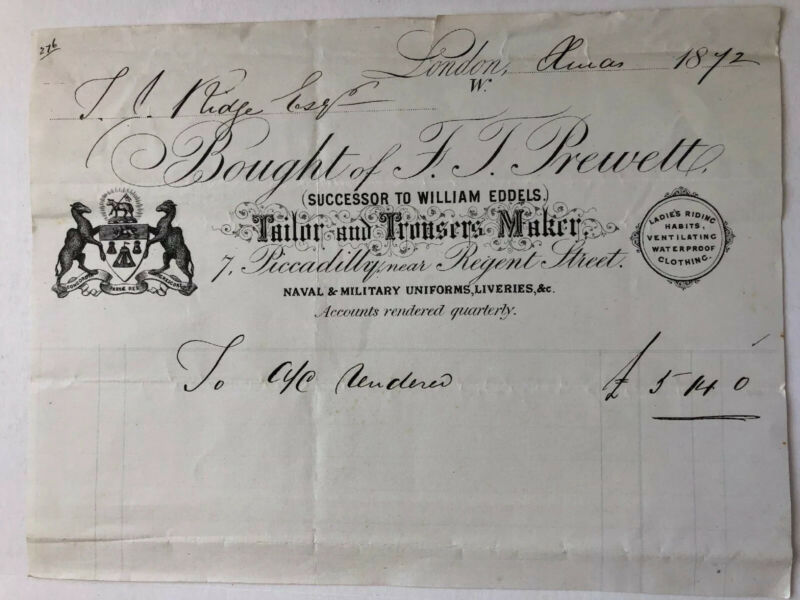 276
London, Xmas 1872
W.
T. J. Ridge Esqr
Bought of F. T. Prewett,
(SUCCESSOR TO WILLIAM EDDELS.)
Tailor and Trousers Maker,
7, Piccadilly, near Regent Street.
NAVAL & MILITARY UNIFORMS, LIVERIES, &c.
Accounts rendered quarterly.
CONCORDIA PARVÆ RES CRESCUNT
LADIE'S RIDING
HABITS,
VENTILATING
WATERPROOF
CLOTHING.
To a/c rendered £ 5 14 0